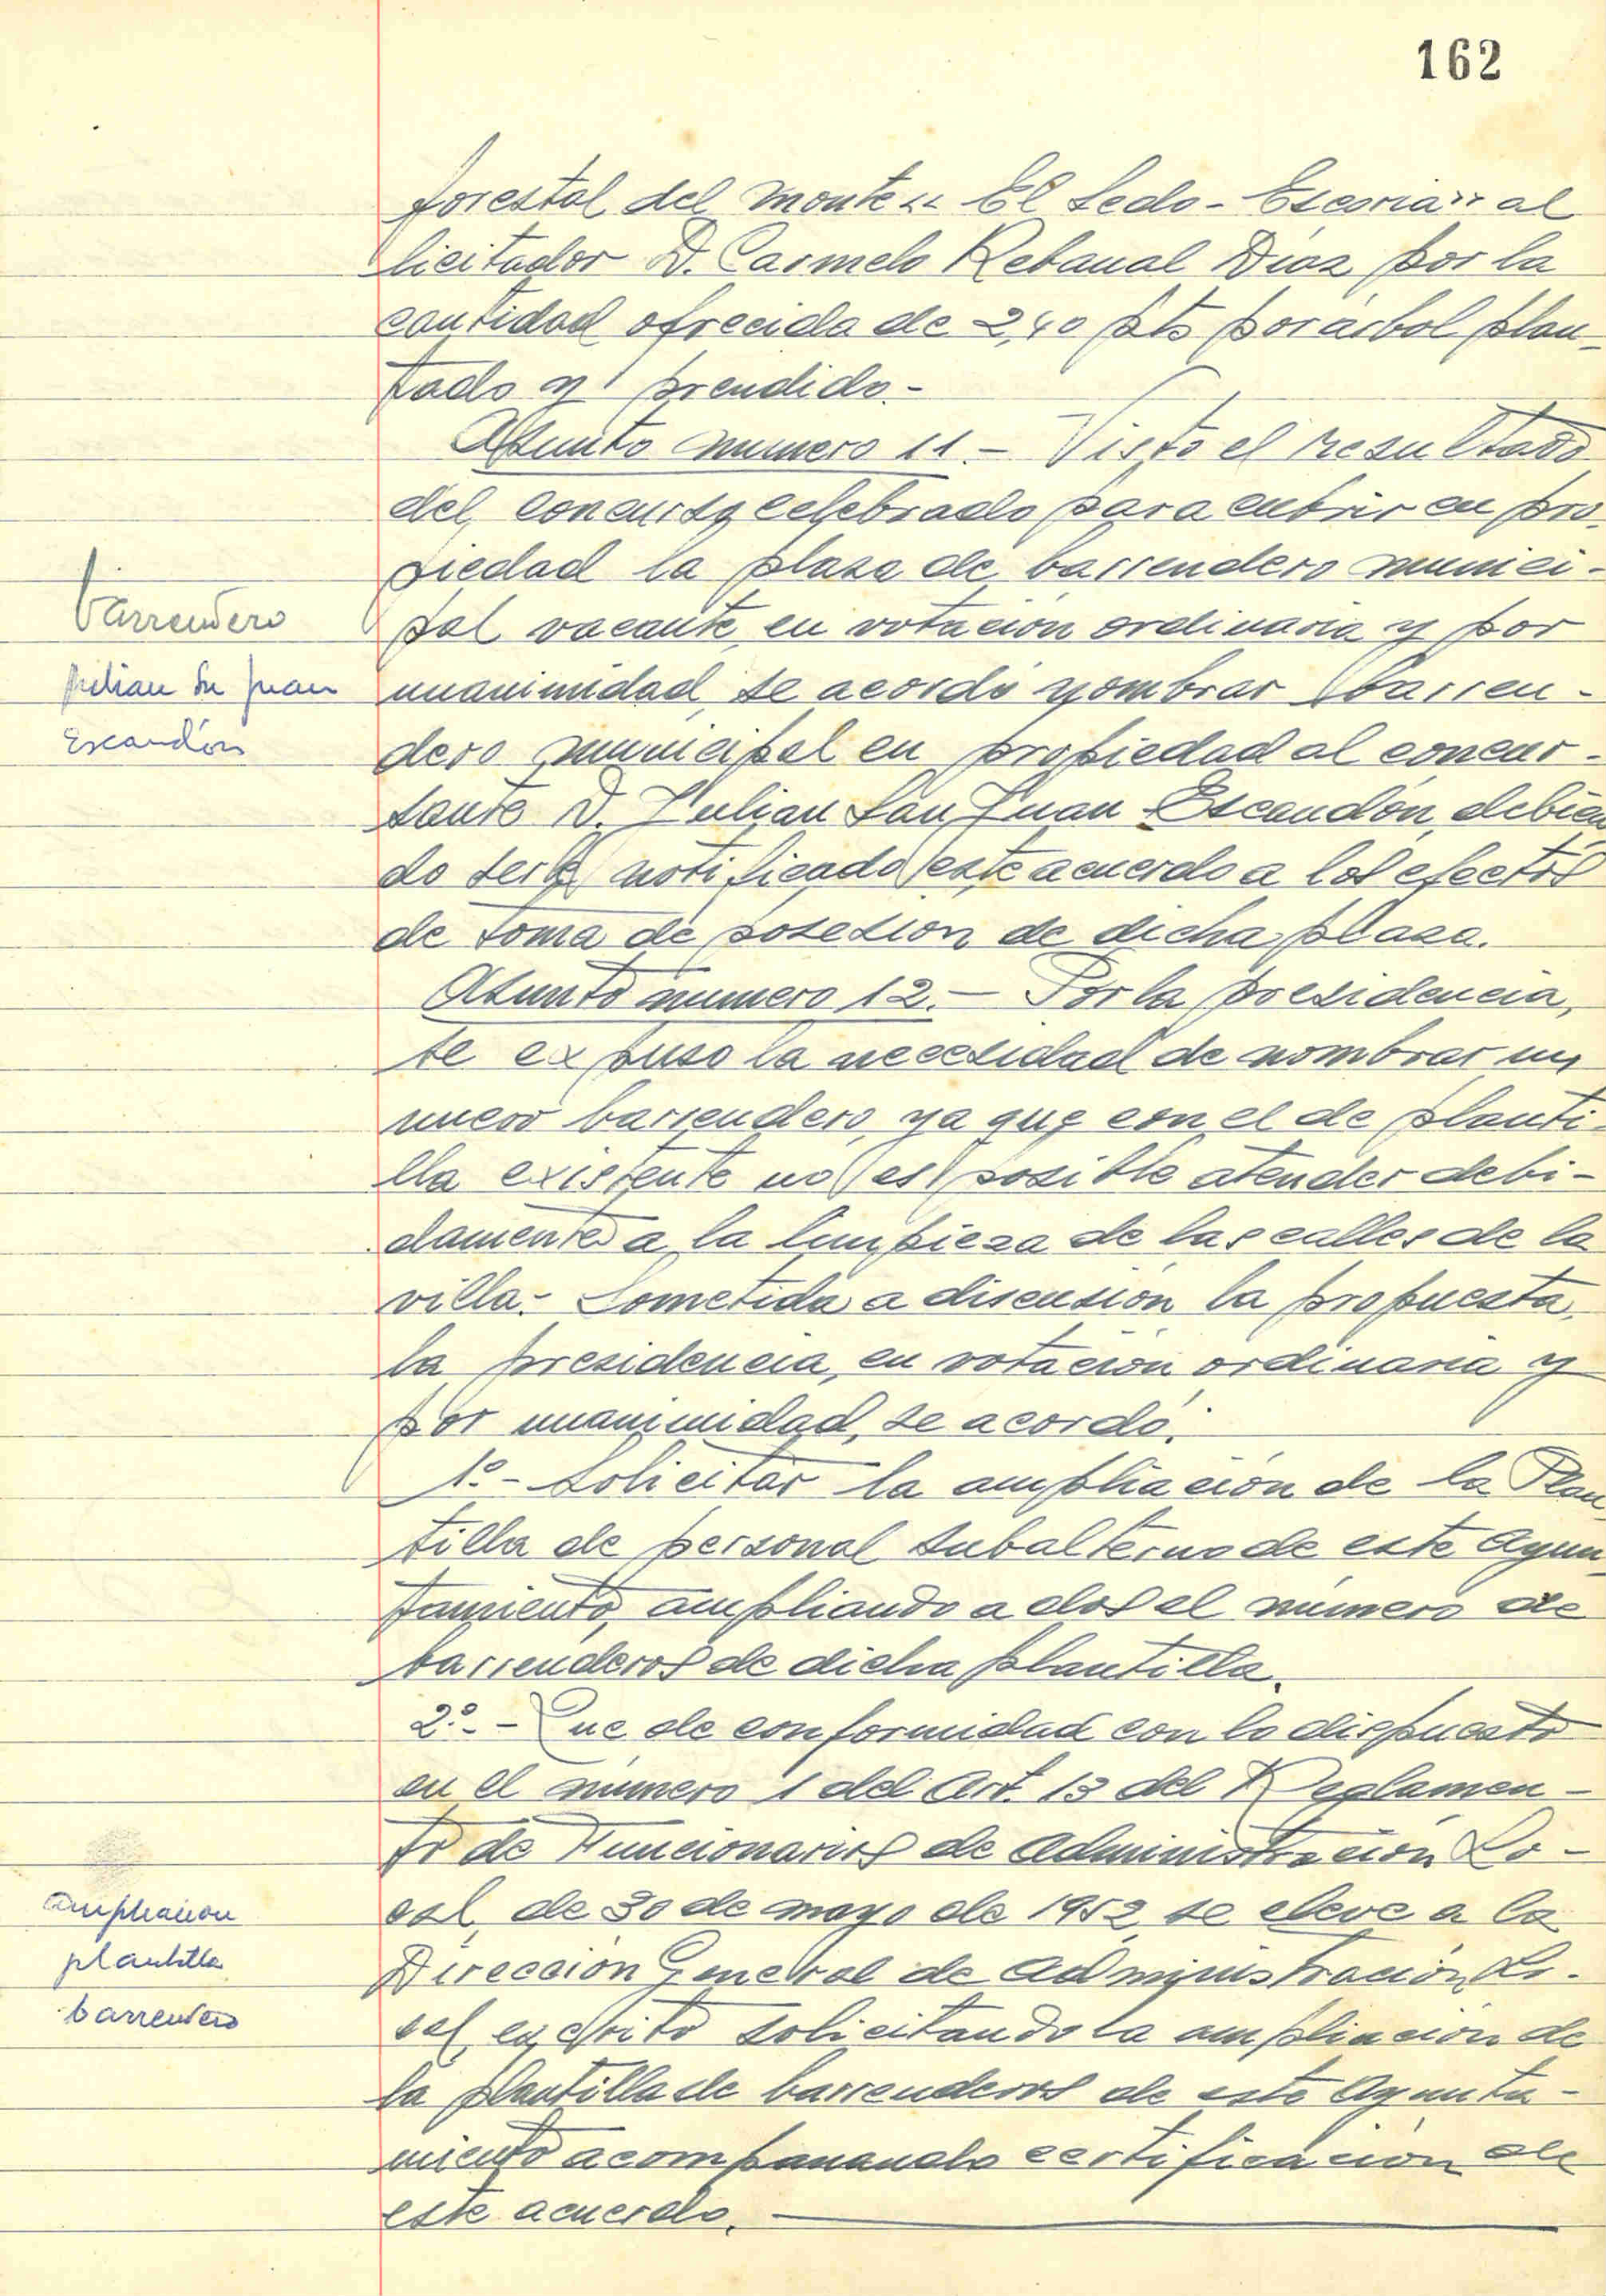 162
forestal del monte "El Sedo-Escoria" al
licitador D. Carmelo Rebanal Díaz por la
cantidad ofrecida de 2,40 pts por árbol plan-
tado y prendido.-
Asunto numero 11.- Visto el resultado
del concurso celebrado para cubrir en pro-
piedad la plaza de barrendero munici-
pal vacante, en votación ordinaria y por
unanimidad, se acordó nombrar barren-
dero municipal en propiedad al concur-
sante D. Julian San Juan Escandón, debien
do serle notificado este acuerdo a los efectos
de toma de posesión de dicha plaza.
Asunto numero 12.- Por la presidencia,
se expuso la necesidad de nombrar un
nuevo barrendero, ya que con el de planti-
lla existente no es posible atender debi-
damente a la limpieza de las calles de la
villa.- Sometida a discusión la propuesta,
la presidencia, en votación ordinaria y
por unanimidad, se acordó:
1º.- Solicitar la ampliación de la Plan-
tilla de personal subalterno de este Ayun-
tamiento, ampliando a dos el número de
barrenderos de dicha plantilla.
2º.- Que de conformidad con lo dispuesto
en el número 1 del Art. 13 del Reglamen-
to de Funcionarios de Administración Lo-
cal, de 30 de mayo de 1952, se eleve a la
Dirección General de Administración Lo-
cal, escrito solicitando la ampliación de
la plantilla de barrenderos de este Ayunta-
miento acompanando certificación de
este acuerdo.
barrendero
Julian Sn Juan
Escandón
Ampliacion
plantilla
barrendero